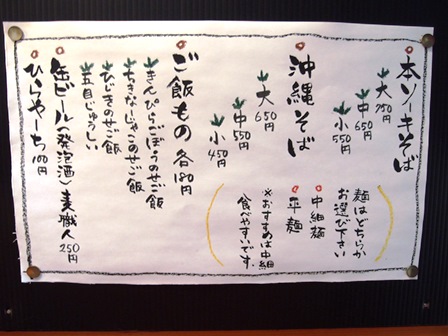 本ソーキそば
大 750円
中 650円
小 550円
麺はどちらか
お選び下さい
沖縄そば
中細麺
平麺
※おすすめは中細
食べやすいです。
大 650円
中 550円
小 450円
ご飯もの 各180円
きんぴらごぼうのせご飯
ちきなじゃこのせご飯
ひじきのせご飯
五目じゅうしい
缶ビール(発泡酒)麦職人 250円
ひらやーち 100円